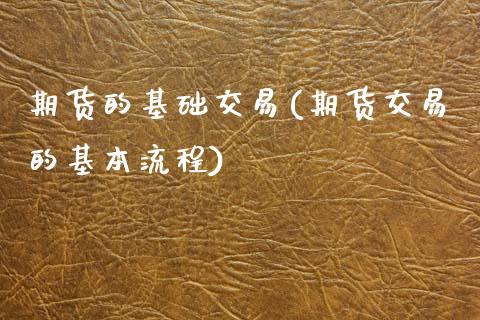 期货的基础交易(期货交易
的基本流程)